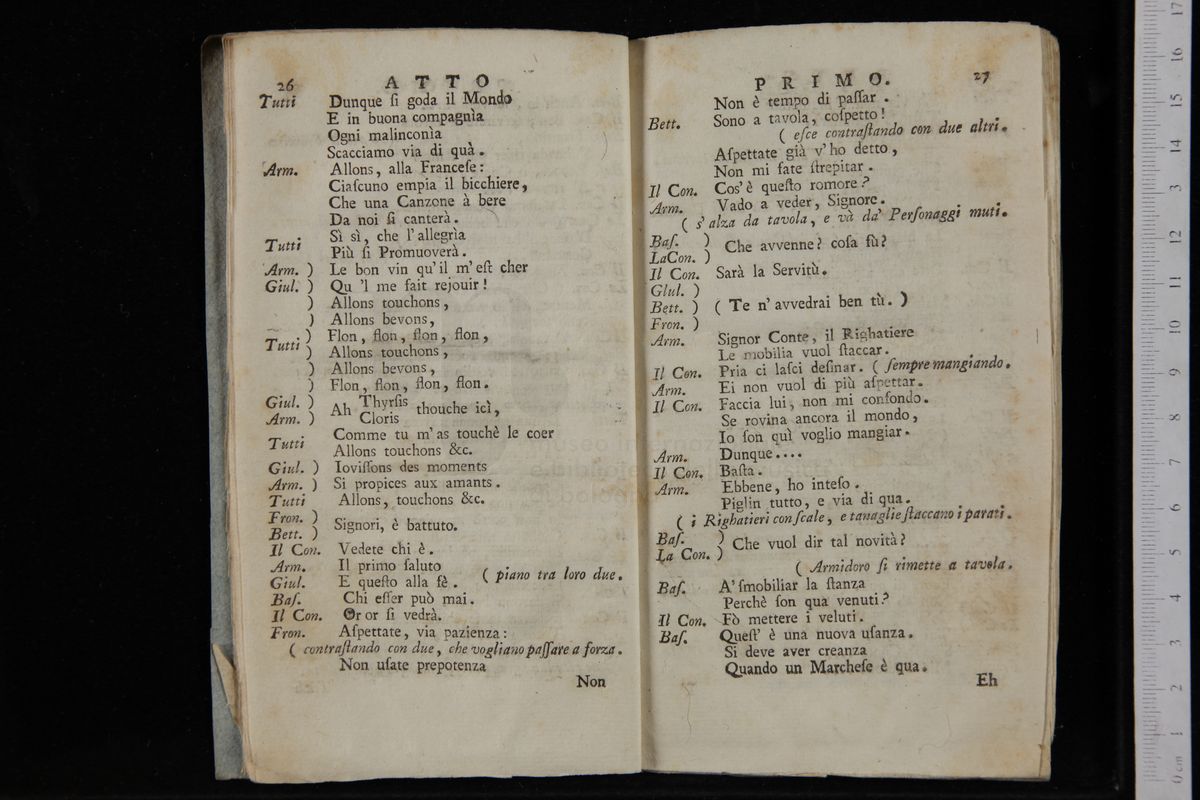 26 ATTO
Tutti Dunque ſi goda il Mondo
E in buona compagnìa
Ogni malinconìa
Scacciamo via di quà.
Arm. Allons, alla Franceſe:
Ciaſcuno empia il bicchiere,
Che una Canzone à bere
Da noi ſi canterà.
Tutti Sì sì, che l'allegrìa
Più ſi Promuoverà.
Arm. ) Le bon vin qu'il m'eſt cher
Giul. ) Qu 'l me fait rejouir!
) Allons touchons,
) Allons bevons,
Tutti ) Flon, flon, flon, flon,
) Allons touchons,
) Allons bevons,
) Flon, flon, flon, flon.
Giul. ) Ah Thyrſis thouche icì,
Arm. ) Cloris
Tutti Comme tu m'as touchè le coer
Allons touchons &c.
Giul. ) Ioviſſons des moments
Arm. ) Si propices aux amants.
Tutti Allons, touchons &c.
Fron. )
Bett. ) Signori, è battuto.
Il Con. Vedete chi è.
Arm. Il primo ſaluto
Giul. E queſto alla fè. ( piano tra loro due.
Baſ. Chi eſſer può mai.
Il Con. Or or ſi vedrà.
Fron. Aſpettate, via pazienza:
( contraſtando con due, che vogliano paſſare a forza.
Non uſate prepotenza
Non
PRIMO. 27
Non è tempo di paſſar.
Bett. Sono a tavola, coſpetto!
( eſce contraſtando con due altri.
Aſpettate già v'ho detto,
Non mi fate ſtrepitar.
Il Con. Cos'è queſto romore?
Arm. Vado a veder, Signore.
( s'alza da tavola, e và da' Perſonaggi muti.
Baſ. ) Che avvenne? coſa fù?
LaCon. )
Il Con. Sarà la Servitù.
Glul. )
Bett. ) ( Te n'avvedrai ben tù. )
Fron. )
Arm. Signor Conte, il Righatiere
Le mobilia vuol ſtaccar.
Il Con. Pria ci laſci deſinar. ( ſempre mangiando.
Arm. Ei non vuol di più aſpettar.
Il Con. Faccia lui, non mi confondo.
Se rovina ancora il mondo,
Io ſon quì voglio mangiar.
Arm. Dunque....
Il Con. Baſta.
Arm. Ebbene, ho inteſo.
Piglin tutto, e via di qua.
( i Righatieri con ſcale, e tanaglie ſtaccano i parati.
Baſ. ) Che vuol dir tal novità?
La Con. )
( Armidoro ſi rimette a tavola.
Baſ. A' ſmobiliar la ſtanza
Perchè ſon qua venuti?
Il Con. Fò mettere i veluti.
Baſ. Queſt' è una nuova uſanza.
Si deve aver creanza
Quando un Marcheſe è qua.
Eh